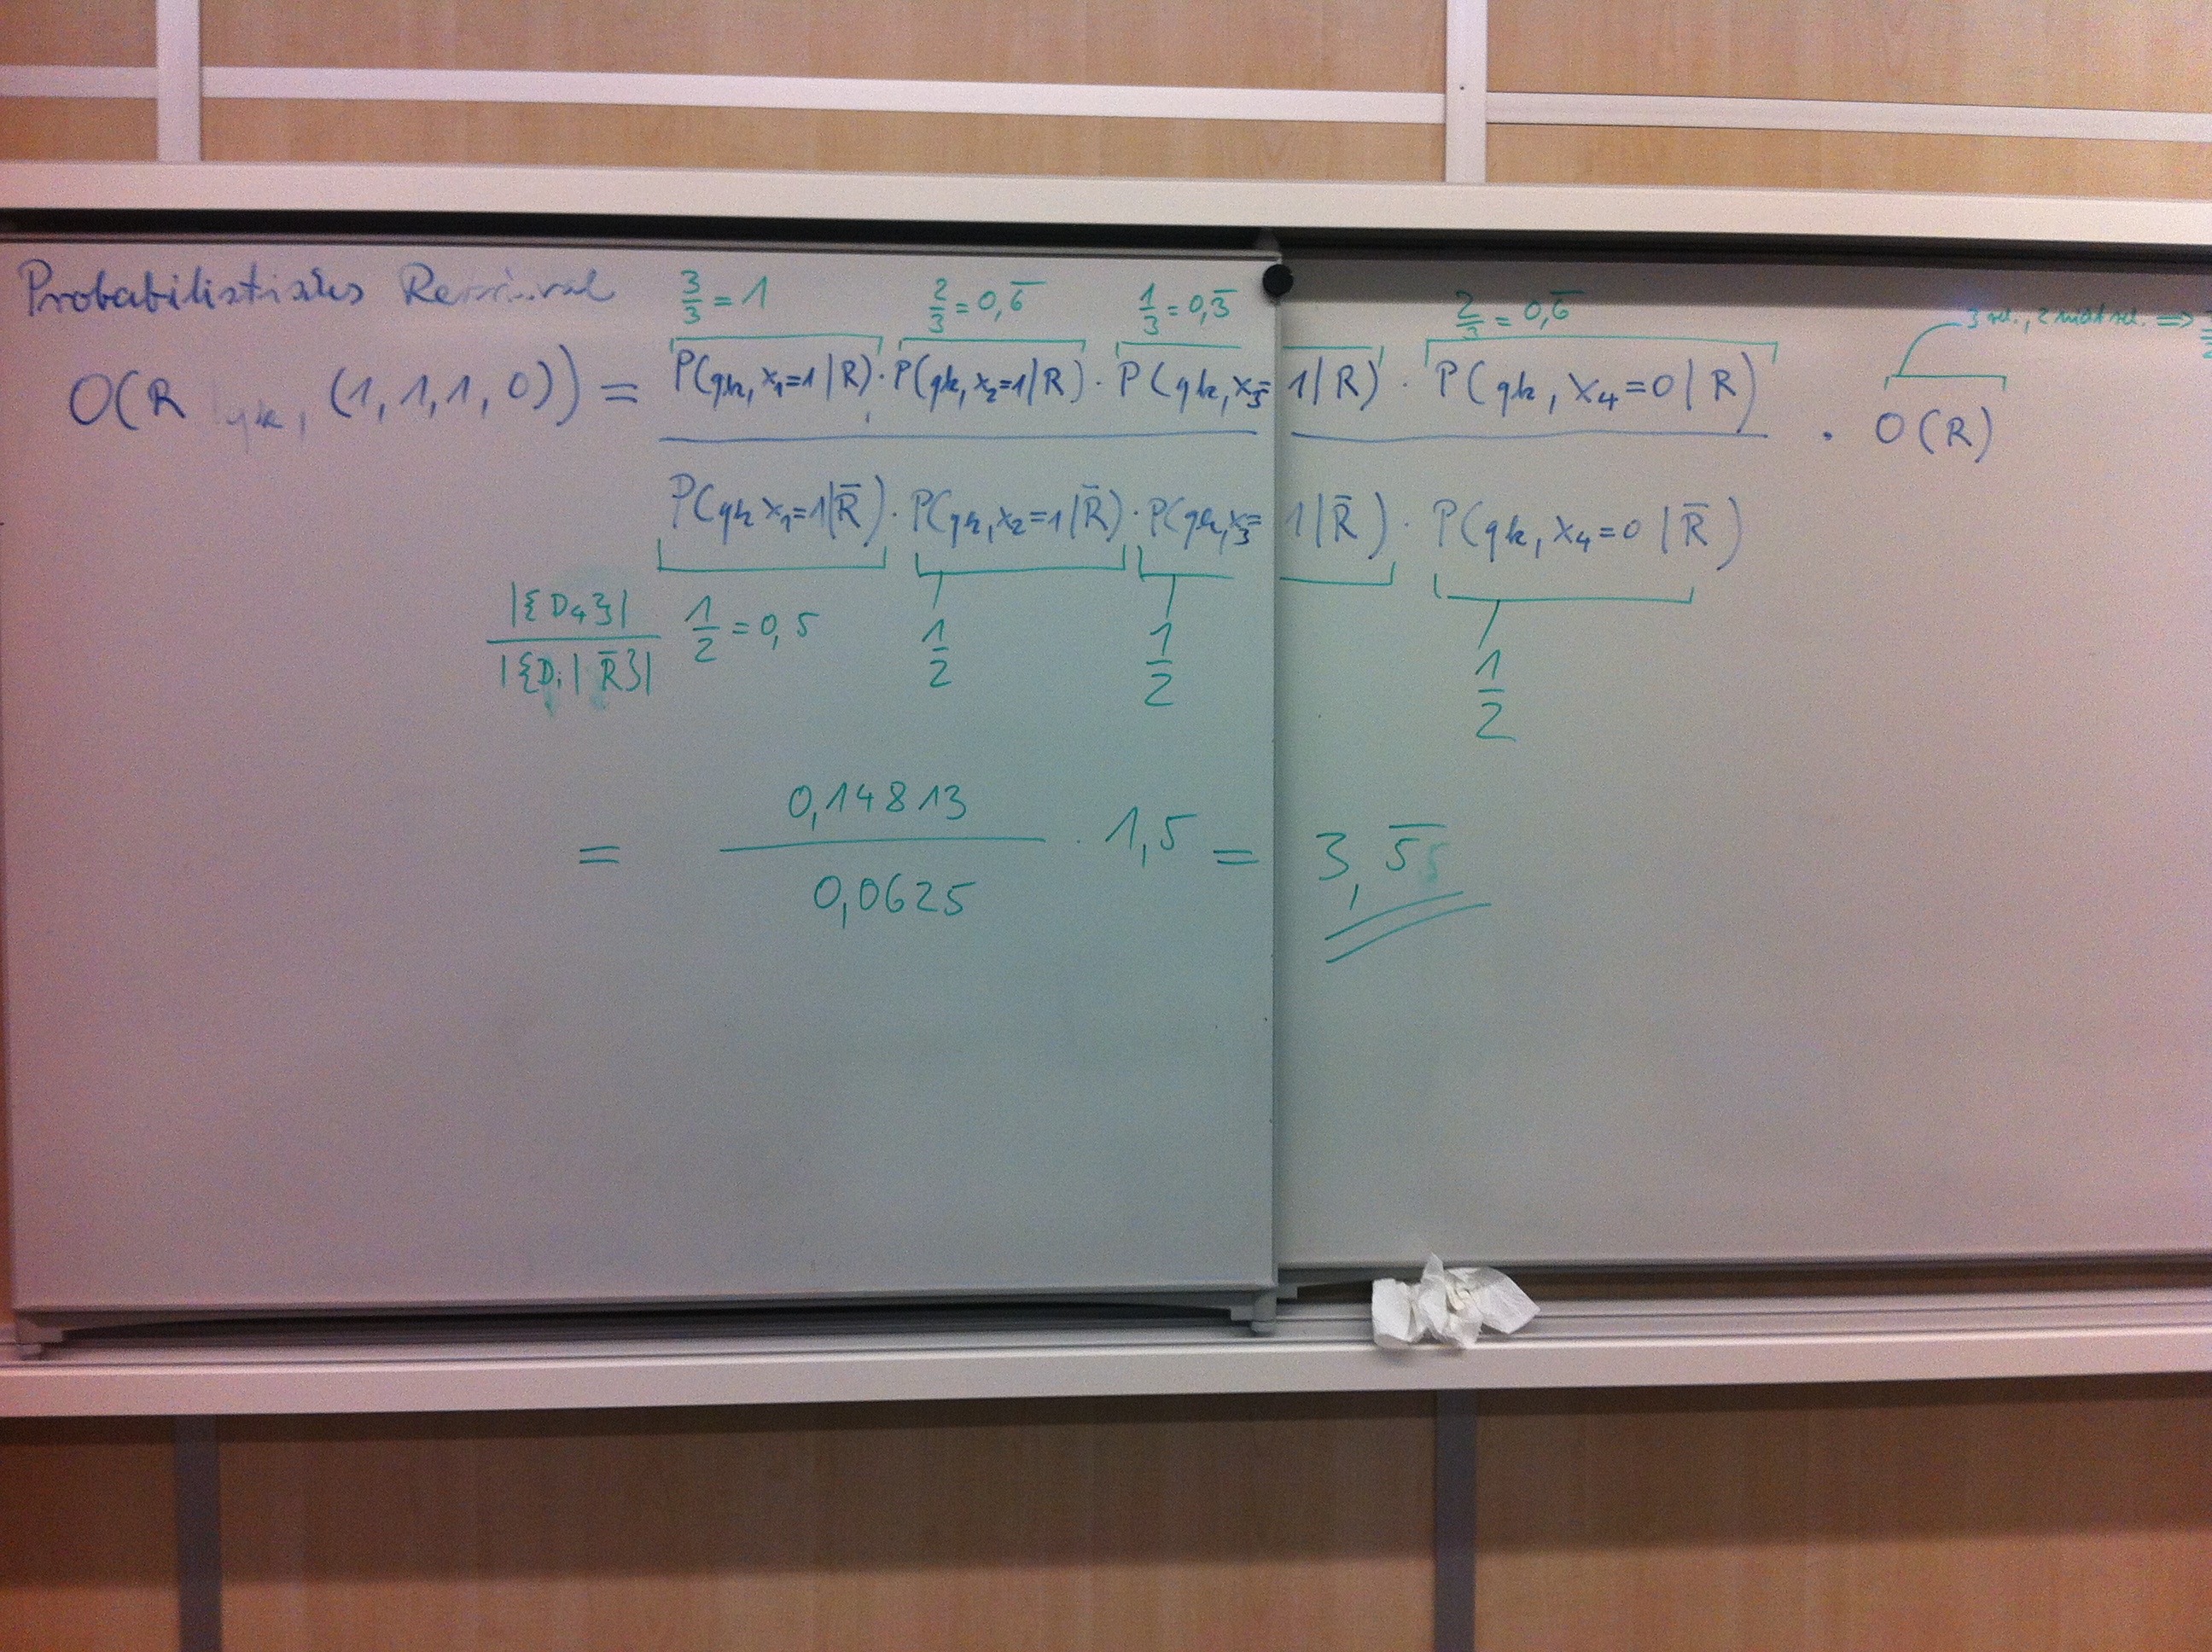 Probabilistisches Retrieval
3/3 = 1 2/3 = 0,6̅ 1/3 = 0,3̅ 2/3 = 0,6̅ 3 rel., 2 nicht rel. ⇒ 3/2
O(R | qk, (1,1,1,0)) = P(qk, x₁=1|R) · P(qk, x₂=1|R) · P(qk, x₃=1|R) · P(qk, x₄=0|R) · O(R)
P(qk x₁=1|R̅) · P(qk, x₂=1|R̅) · P(qk, x₃=1|R̅) · P(qk, x₄=0|R̅)
|{D₄}| / |{Dᵢ|R̅}| 1/2 = 0,5 1/2 1/2 1/2
= 0,14813 / 0,0625 · 1,5 = 3,5̅